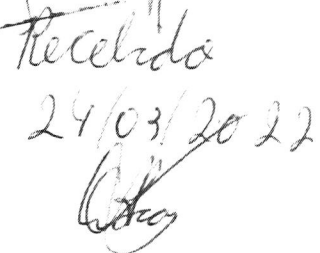 Recebido
24/03/2022